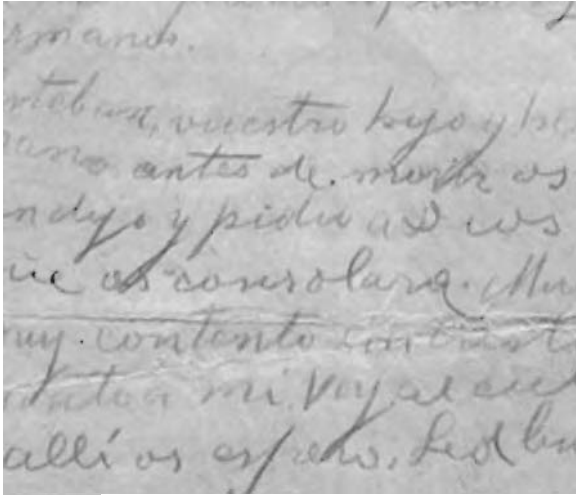 rmanos.
steban, vuestro hijo y he
mano antes de morir os
ndijo y pidio a Dios
ue os consolara. Mu
uy contento con Crist
mi. Voy al cie
allí os espero. Sed bu